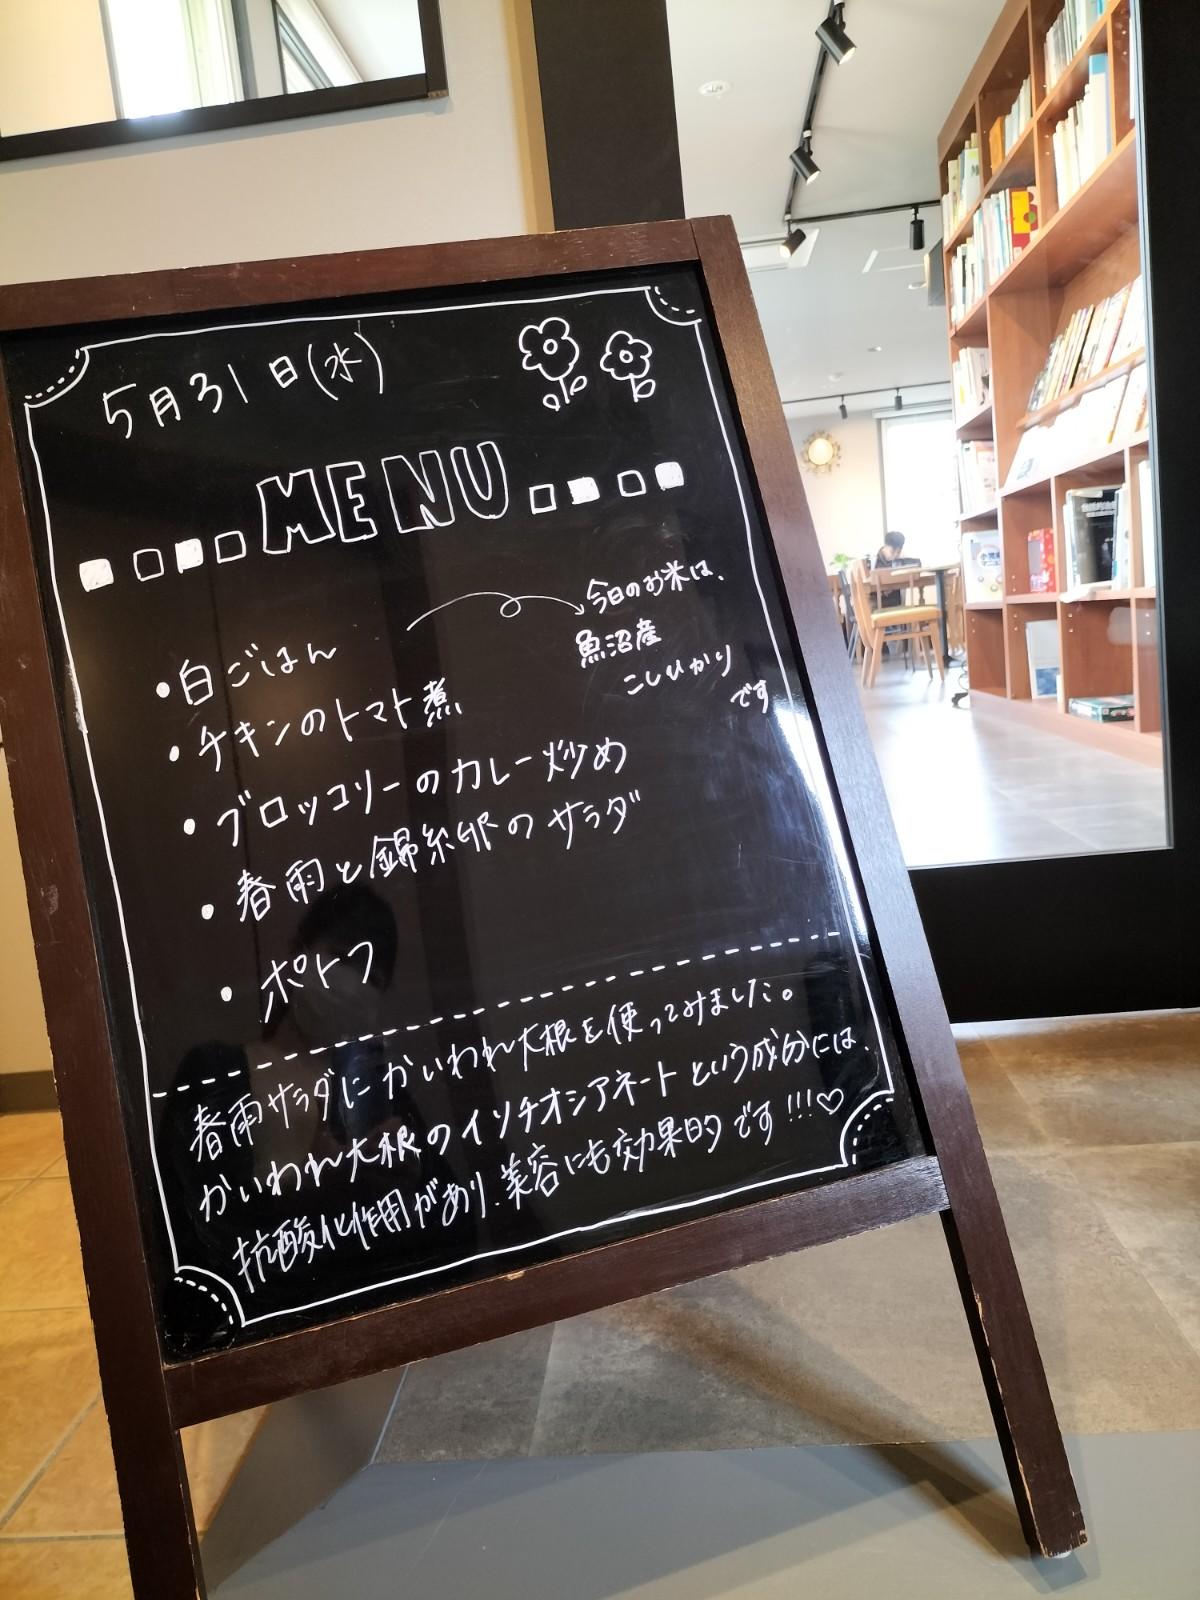 5月31日(水)
MENU
今日のお米は、
魚沼産
こしひかり
です
・白ごはん
・チキンのトマト煮
・ブロッコリーのカレー炒め
・春雨と錦糸卵のサラダ
・ポトフ
春雨サラダにかいわれ大根を使ってみました。
かいわれ大根のイソチオシアネートという成分には、
抗酸化作用があり、美容にも効果的です!!!♡